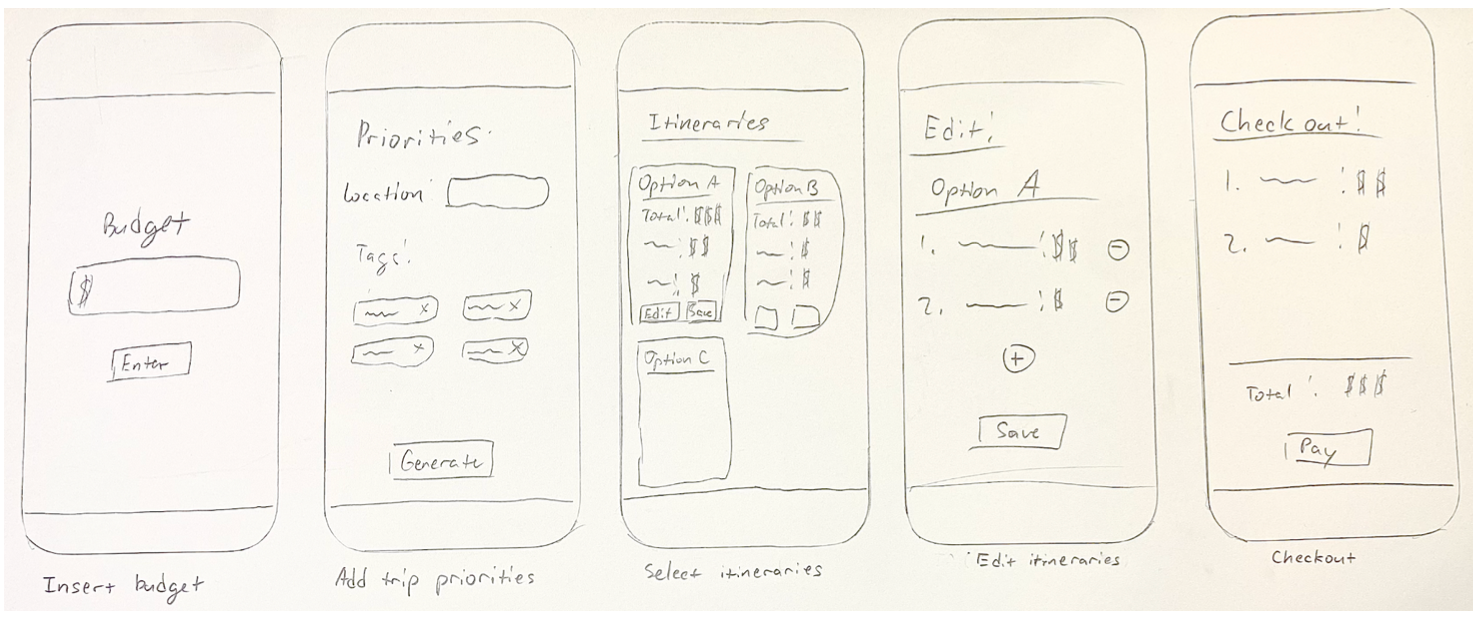 Budget
$
Enter
Insert budget
Priorities:
Location:
Tags:
x
x
x
x
Generate
Add trip priorities
Itineraries
Option A
Total: $$$
: $$
: $
Edit
Save
Option B
Total: $$
: $
: $
Option C
Select itineraries
Edit:
Option A
1. : $$ -
2. : $ -
+
Save
Edit itineraries
Checkout:
1. : $$
2. : $
Total: $$$
Pay
Checkout